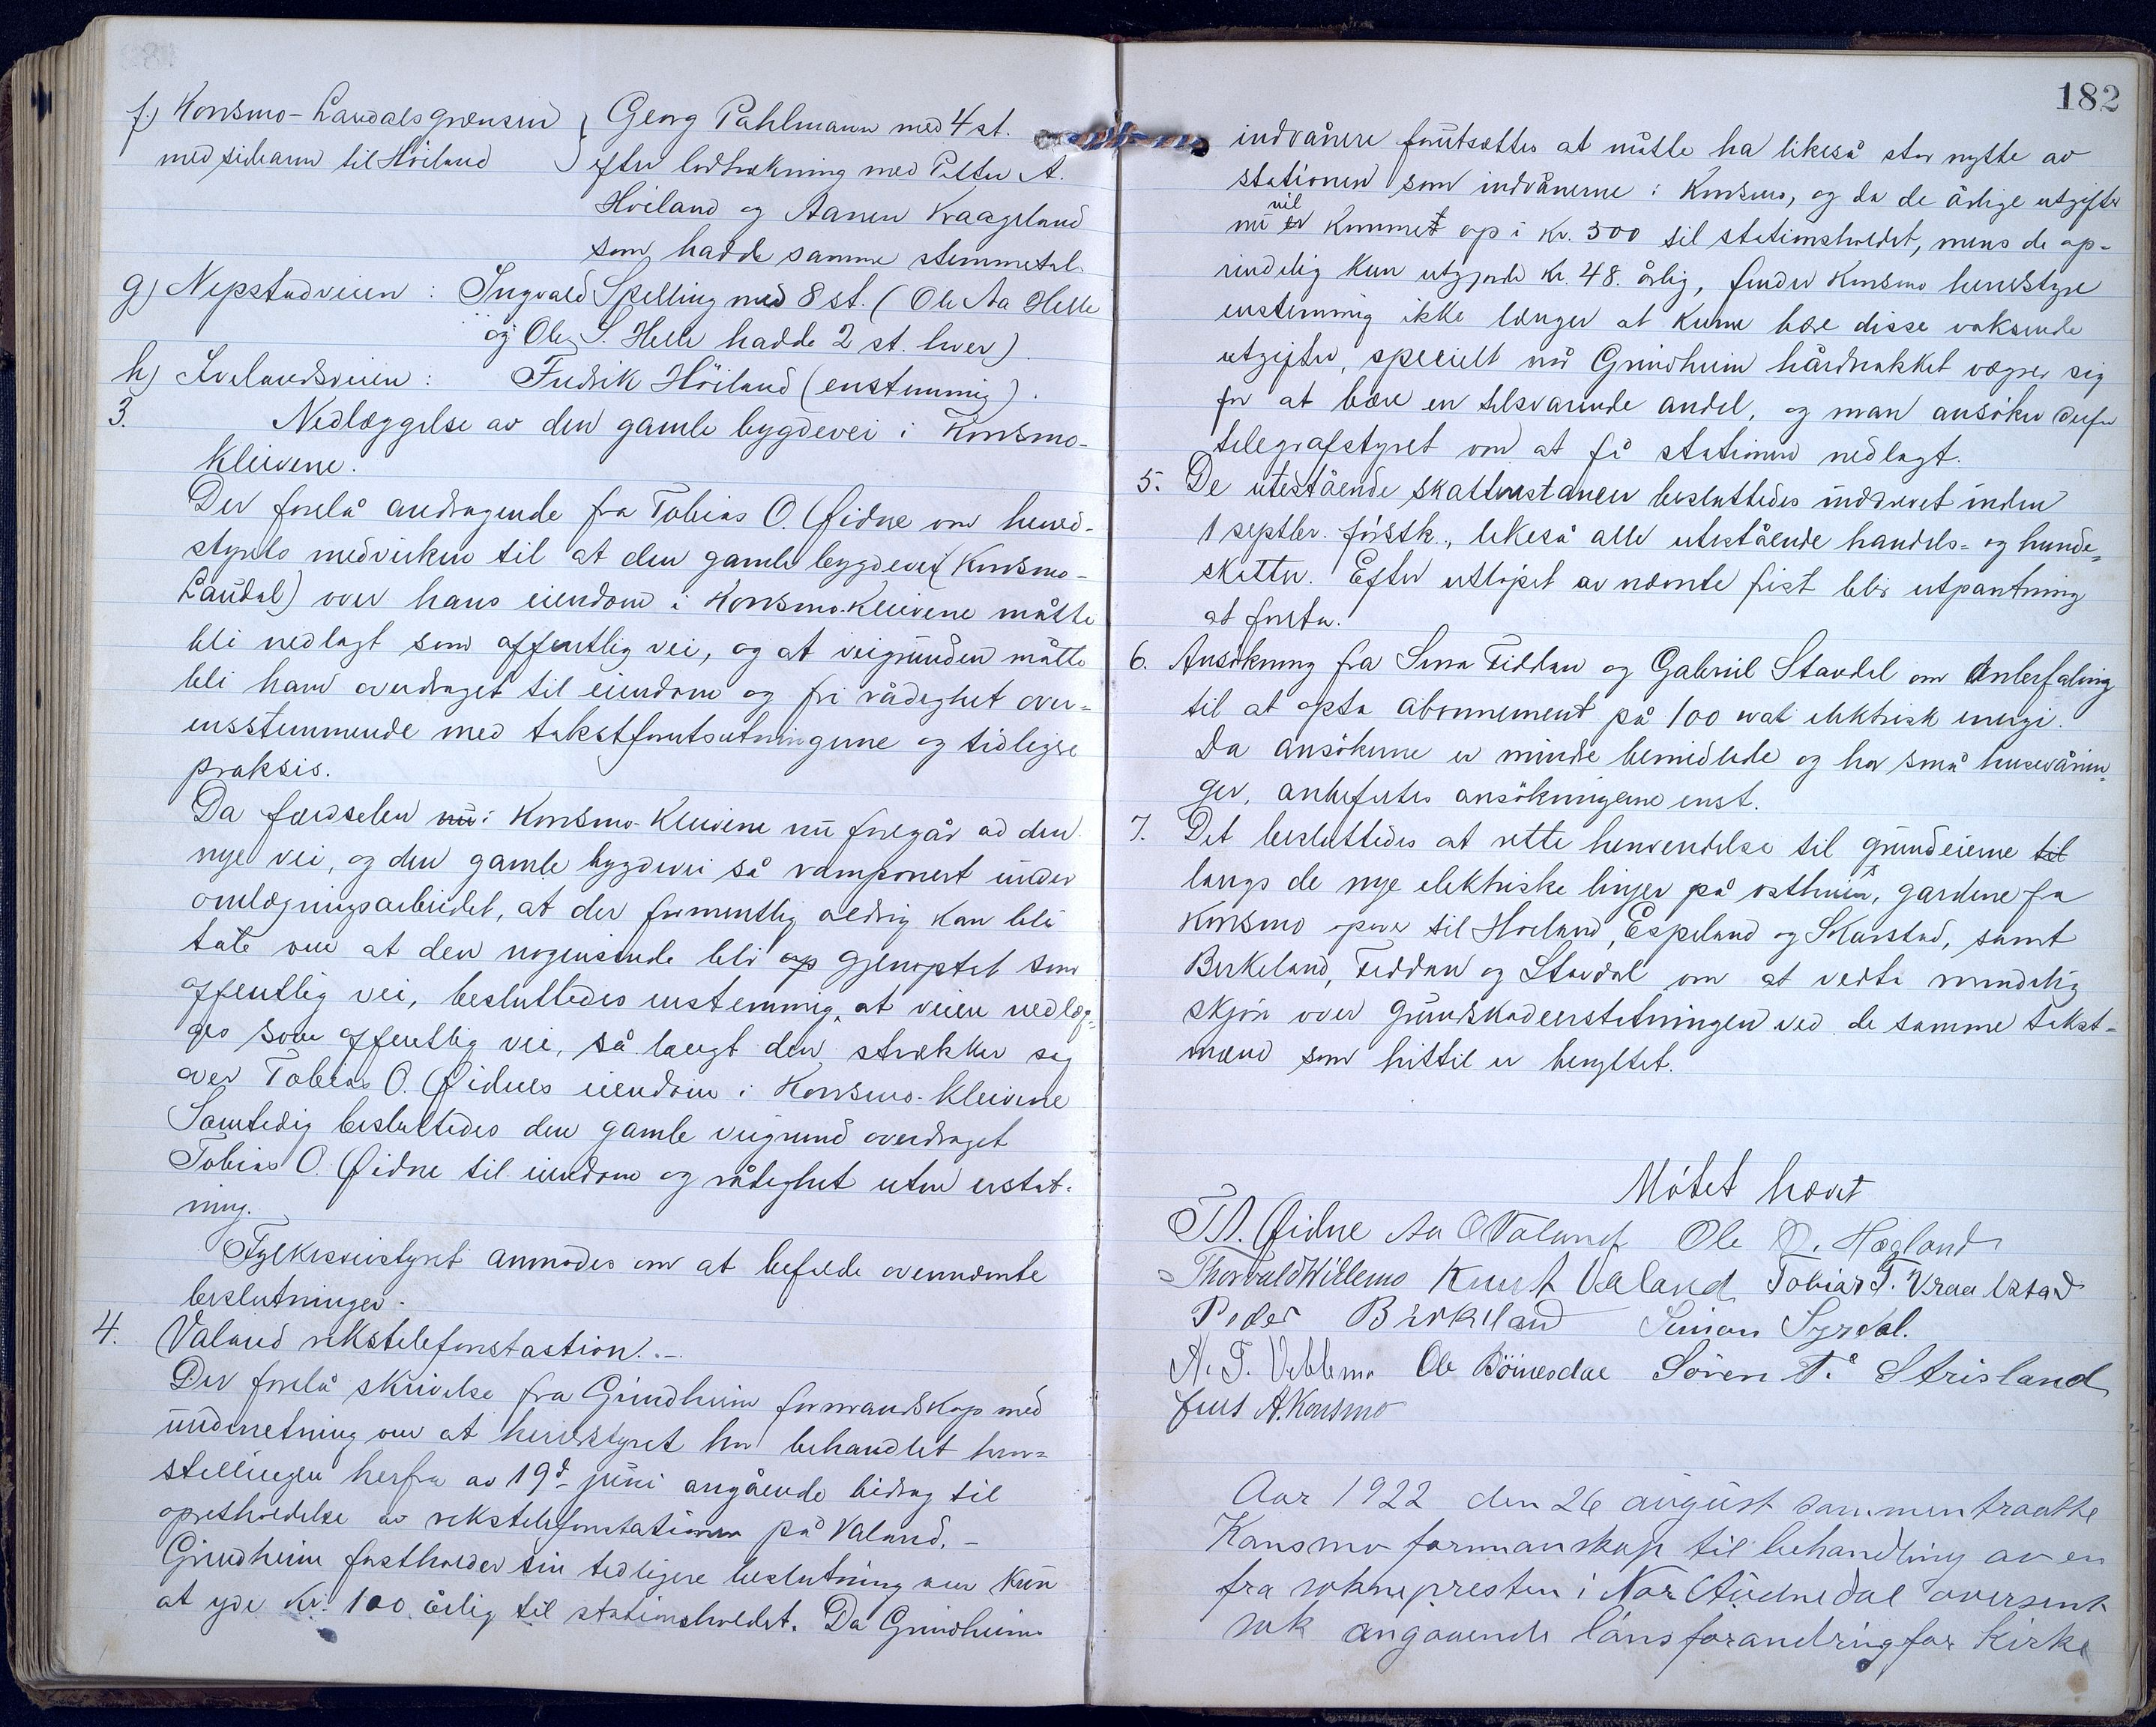 f.) Konsmo-Laudalsgrænsen { Georg Pahlmann med 4 st.
med sidearm til Höiland } efter lodtrækning med Petter A.
Höiland og Aanen Kraageland
som hadde samme stemmetal.
g) Nepstadveien : Ingvald Spelling med 8 st. (Ole Aa Helle
og Ole S. Helle hadde 2 st. hver).
h) Ivelandsveien : Fredrik Höiland (enstemmig).
3. Nedlæggelse av den gamle bygdevei i Konsmo-
kleivene.
Der forelå andragende fra Tobias O. Øidne om herred-
styrets medvirken til at den gamle bygdevei (Konsmo-
Laudal) over hans eiendom i Konsmo-Kleivene måtte
bli nedlagt som offentlig vei, og at veigrunden måtte
bli ham overdraget til eiendom og fri rådighet over-
ensstemmende med takstforutsætningerne og tidligere
praksis.
Da færdselen nu i Konsmo-Kleivene nu foregår ad den
nye vei, og den gamle bygdevei så ramponert under
omlægningsarbeidet, at der formentlig aldrig kan bli
tale om at den nogensinde blir op gjenoptat som
offentlig vei, besluttedes enstemmig, at veien nedlæg-
ges som offentlig vei, så langt den strækker sig
over Tobias O. Øidnes eiendom i Konsmo-kleivene
Samtidig besluttedes den gamle veigrund overdraget
Tobias O. Øidne til eiendom og rådighet uten erstat-
ning.
Fylkesveistyret anmodes om at bifalde ovennævnte
beslutninger.
4. Valand rikstelefonstastion.-
Der forelå skrivelse fra Grindheim formandskap med
underretning om at herredstyret har behandlet hen-
stillingen herfra av 19d juni angående bidrag til
opretholdelse av rikstelefonstationen på Valand.-
Grindheim fastholder sin tidligere beslutning om kun
at yde kr. 100 årlig til stationsholdet. Da Grindheims
182
indvånere forutsættes at måtte ha likeså stor nytte av
stationen som indvånerne i Konsmo, og da de årlige utgifter
vil
nu er kommet op i kr. 300 til stationsholdet, mens de op-
rindelig kun utgjorde kr. 48. årlig, finder Konsmo herredstyre
enstemmig ikke længer at kunne bære disse voksende
utgifter, specielt når Grindheim hårdnakket vægrer sig
for at bære en tilsvarende andel, og man ansöker derfor
telegrafstyret om at få stationen nedlagt.
5. De utestående skatterestancer besluttedes inddrevet inden
1 septbr. förstk., likeså alle utestående handels- og hunde-
skatter. Efter utløpet av nævnte frist blir utpantning
at foreta.
6. Ansökning fra Fiddan og Gabriel Stavdal om Anbefaling
til at opta abonnement på 100 wat elektrisk energi.
Da ansökerne er mindre bemidlede og har små husevånin-
ger, anbefales ansökningerne enst.
7. Det besluttedes at rette henvendelse til grundeierne til
langs de nye elektriske linjer på gardene fra
Konsmo opover til Höiland, Espeland og Skarstad, samt
Birkeland, Fiddan og Stavdal om at vedta mindelig
skjön over grundskadeerstatningen ved de samme takst-
mænd som hittil er benyttet.
Mötet hævet
T. O. Øidne Aa O Valand Ole O. Hægland
Thorvald Willemo Knut Valand Tobias T. Vraalstad
Peder Birkeland Simon Syrdal.
A. T. Vehlemo Ole Böinesdal Sören T. Strisland
Jens A. Konsmo
Aar 1922 den 26 august sammentraatte
Konsmo formanskap til behandling av en
fra soknepresten i Nor Audnedal oversent
sak angaaende lönsforandring for kirke